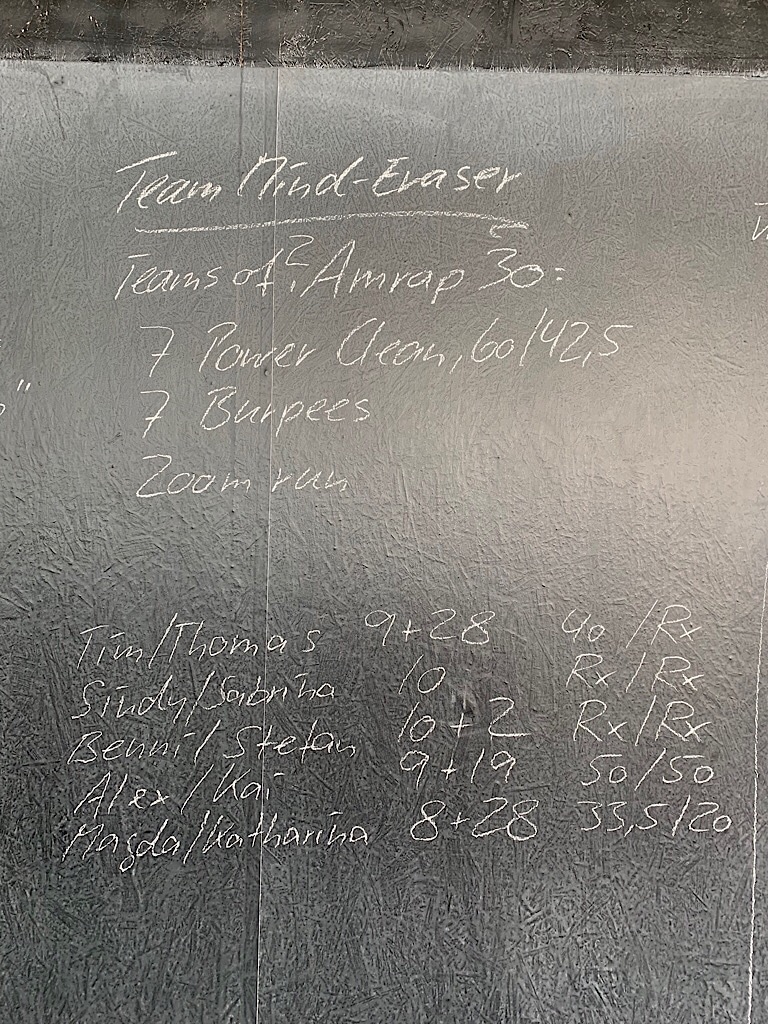 Team Mind-Eraser
Teams of 2, Amrap 30:
7 Power Clean, 60/42,5
7 Burpees
200m run
Tim/Thomas 9+28 40/Rx
Sindy/Sabrina 10 Rx/Rx
Benni/Stefan 10+2 Rx/Rx
Alex/Kai 9+19 50/50
Magda/Katharina 8+28 33,5/20